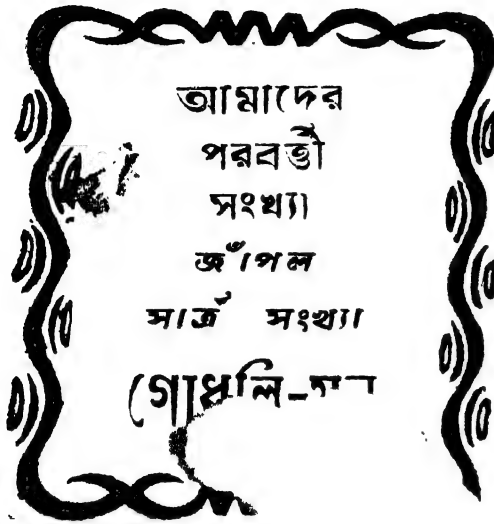 আমাদের
পরবর্ত্তী
সংখ্যা
জাঁপল
সার্ত্র সংখ্যা
গোধুলি-মন